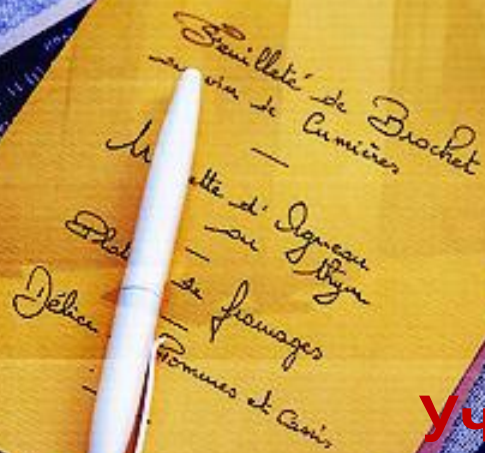 Feuilleté de Brochet
au vin de Cumières
—
d' Agneau
au thym
—
de fromages
—
Délice Pommes et Cassis
Уч